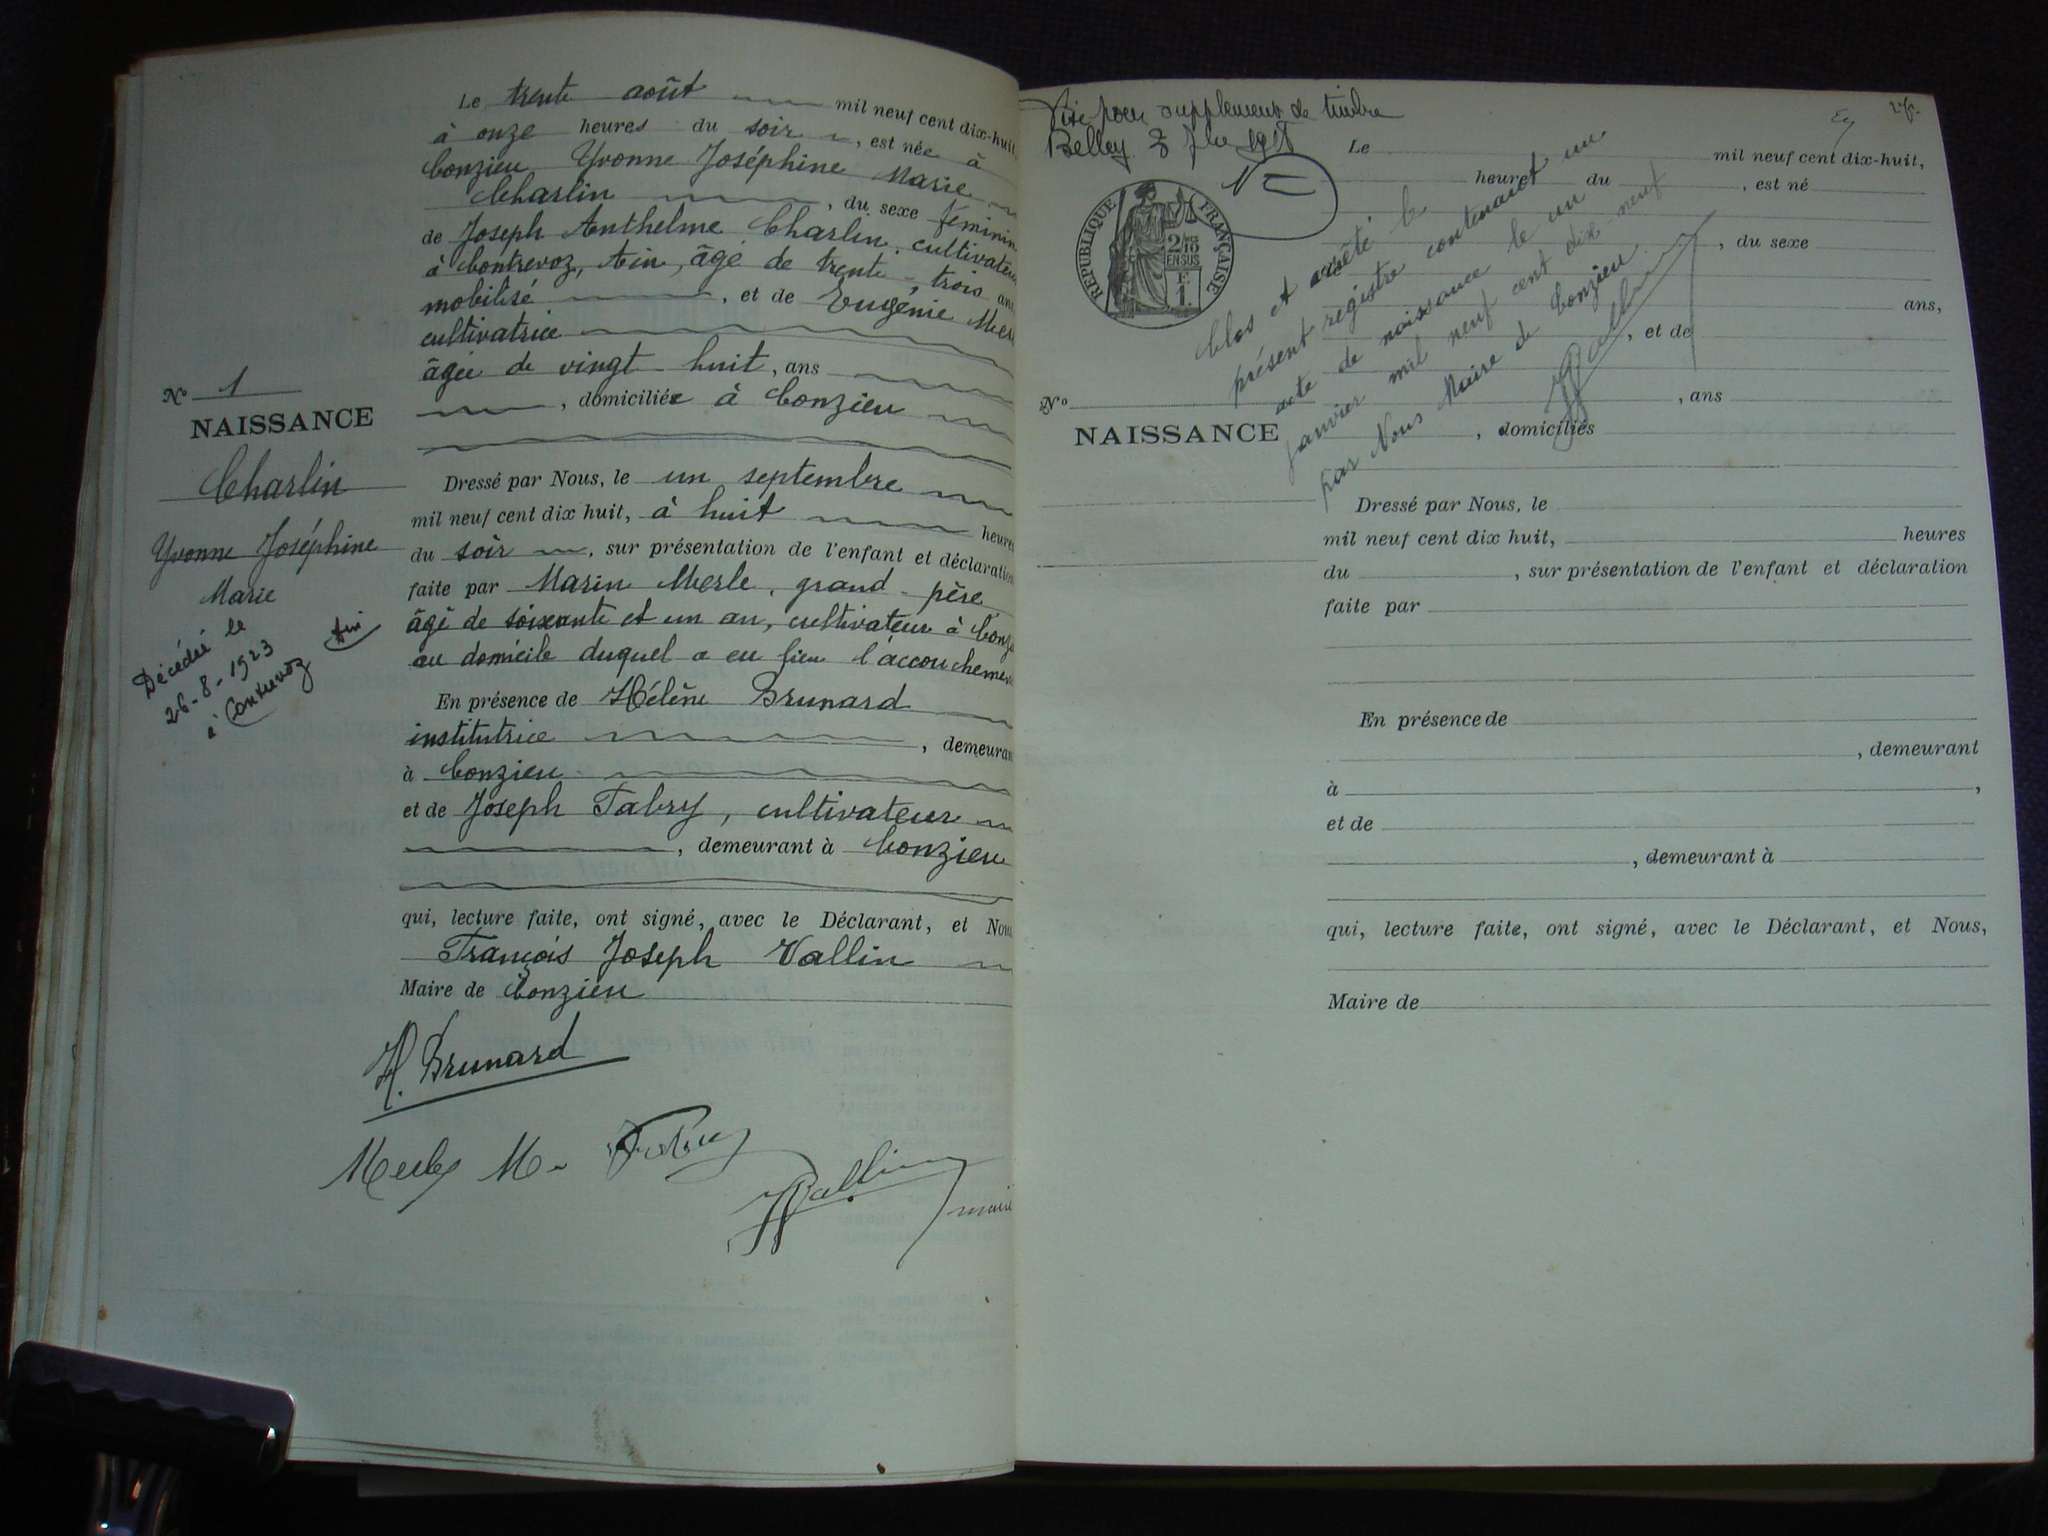 Le trente août mil neuf cent dix-huit,
à onze heures du soir, est née à
Conzieu Yvonne Joséphine Marie
Charlin, du sexe féminin
de Joseph Anthelme Charlin, cultivateur
à Contrevoz, Ain, âgé de trente-trois ans
mobilisé, et de Eugénie Merle
cultivatrice
âgée de vingt-huit, ans
, domiciliée à Conzieu
Dressé par Nous, le un septembre
mil neuf cent dix huit, à huit heures
du soir, sur présentation de l'enfant et déclaration
faite par Marin Merle, grand-père
âgé de soixante et un an, cultivateur à Conzieu
au domicile duquel a eu lieu l'accouchement
En présence de Hélène Brunard
institutrice, demeurant
à Conzieu
et de Joseph Fabry, cultivateur
, demeurant à Conzieu
qui, lecture faite, ont signé, avec le Déclarant, et Nous
François Joseph Vallin
Maire de Conzieu
H. Brunard
Merle M.
Vallin
maire
N° 1
NAISSANCE
Charlin
Yvonne Joséphine
Marie
Décédée le
26-8-1923
à Contrevoz Ain
Visé pour supplément de timbre
Belley 1918
RÉPUBLIQUE FRANÇAISE
2/10
EN SUS
F.
1.
Clos et arrêté le
présent registre contenant un
acte de naissance le un
janvier mil neuf cent dix neuf
par Nous Maire de Conzieu
Vallin
Le mil neuf cent dix-huit,
heures du , est né
, du sexe
ans,
, et de
, ans
, domiciliés
N°
NAISSANCE
Dressé par Nous, le
mil neuf cent dix huit, heures
du , sur présentation de l'enfant et déclaration
faite par
En présence de
, demeurant
à ,
et de
, demeurant à
qui, lecture faite, ont signé, avec le Déclarant, et Nous,
Maire de